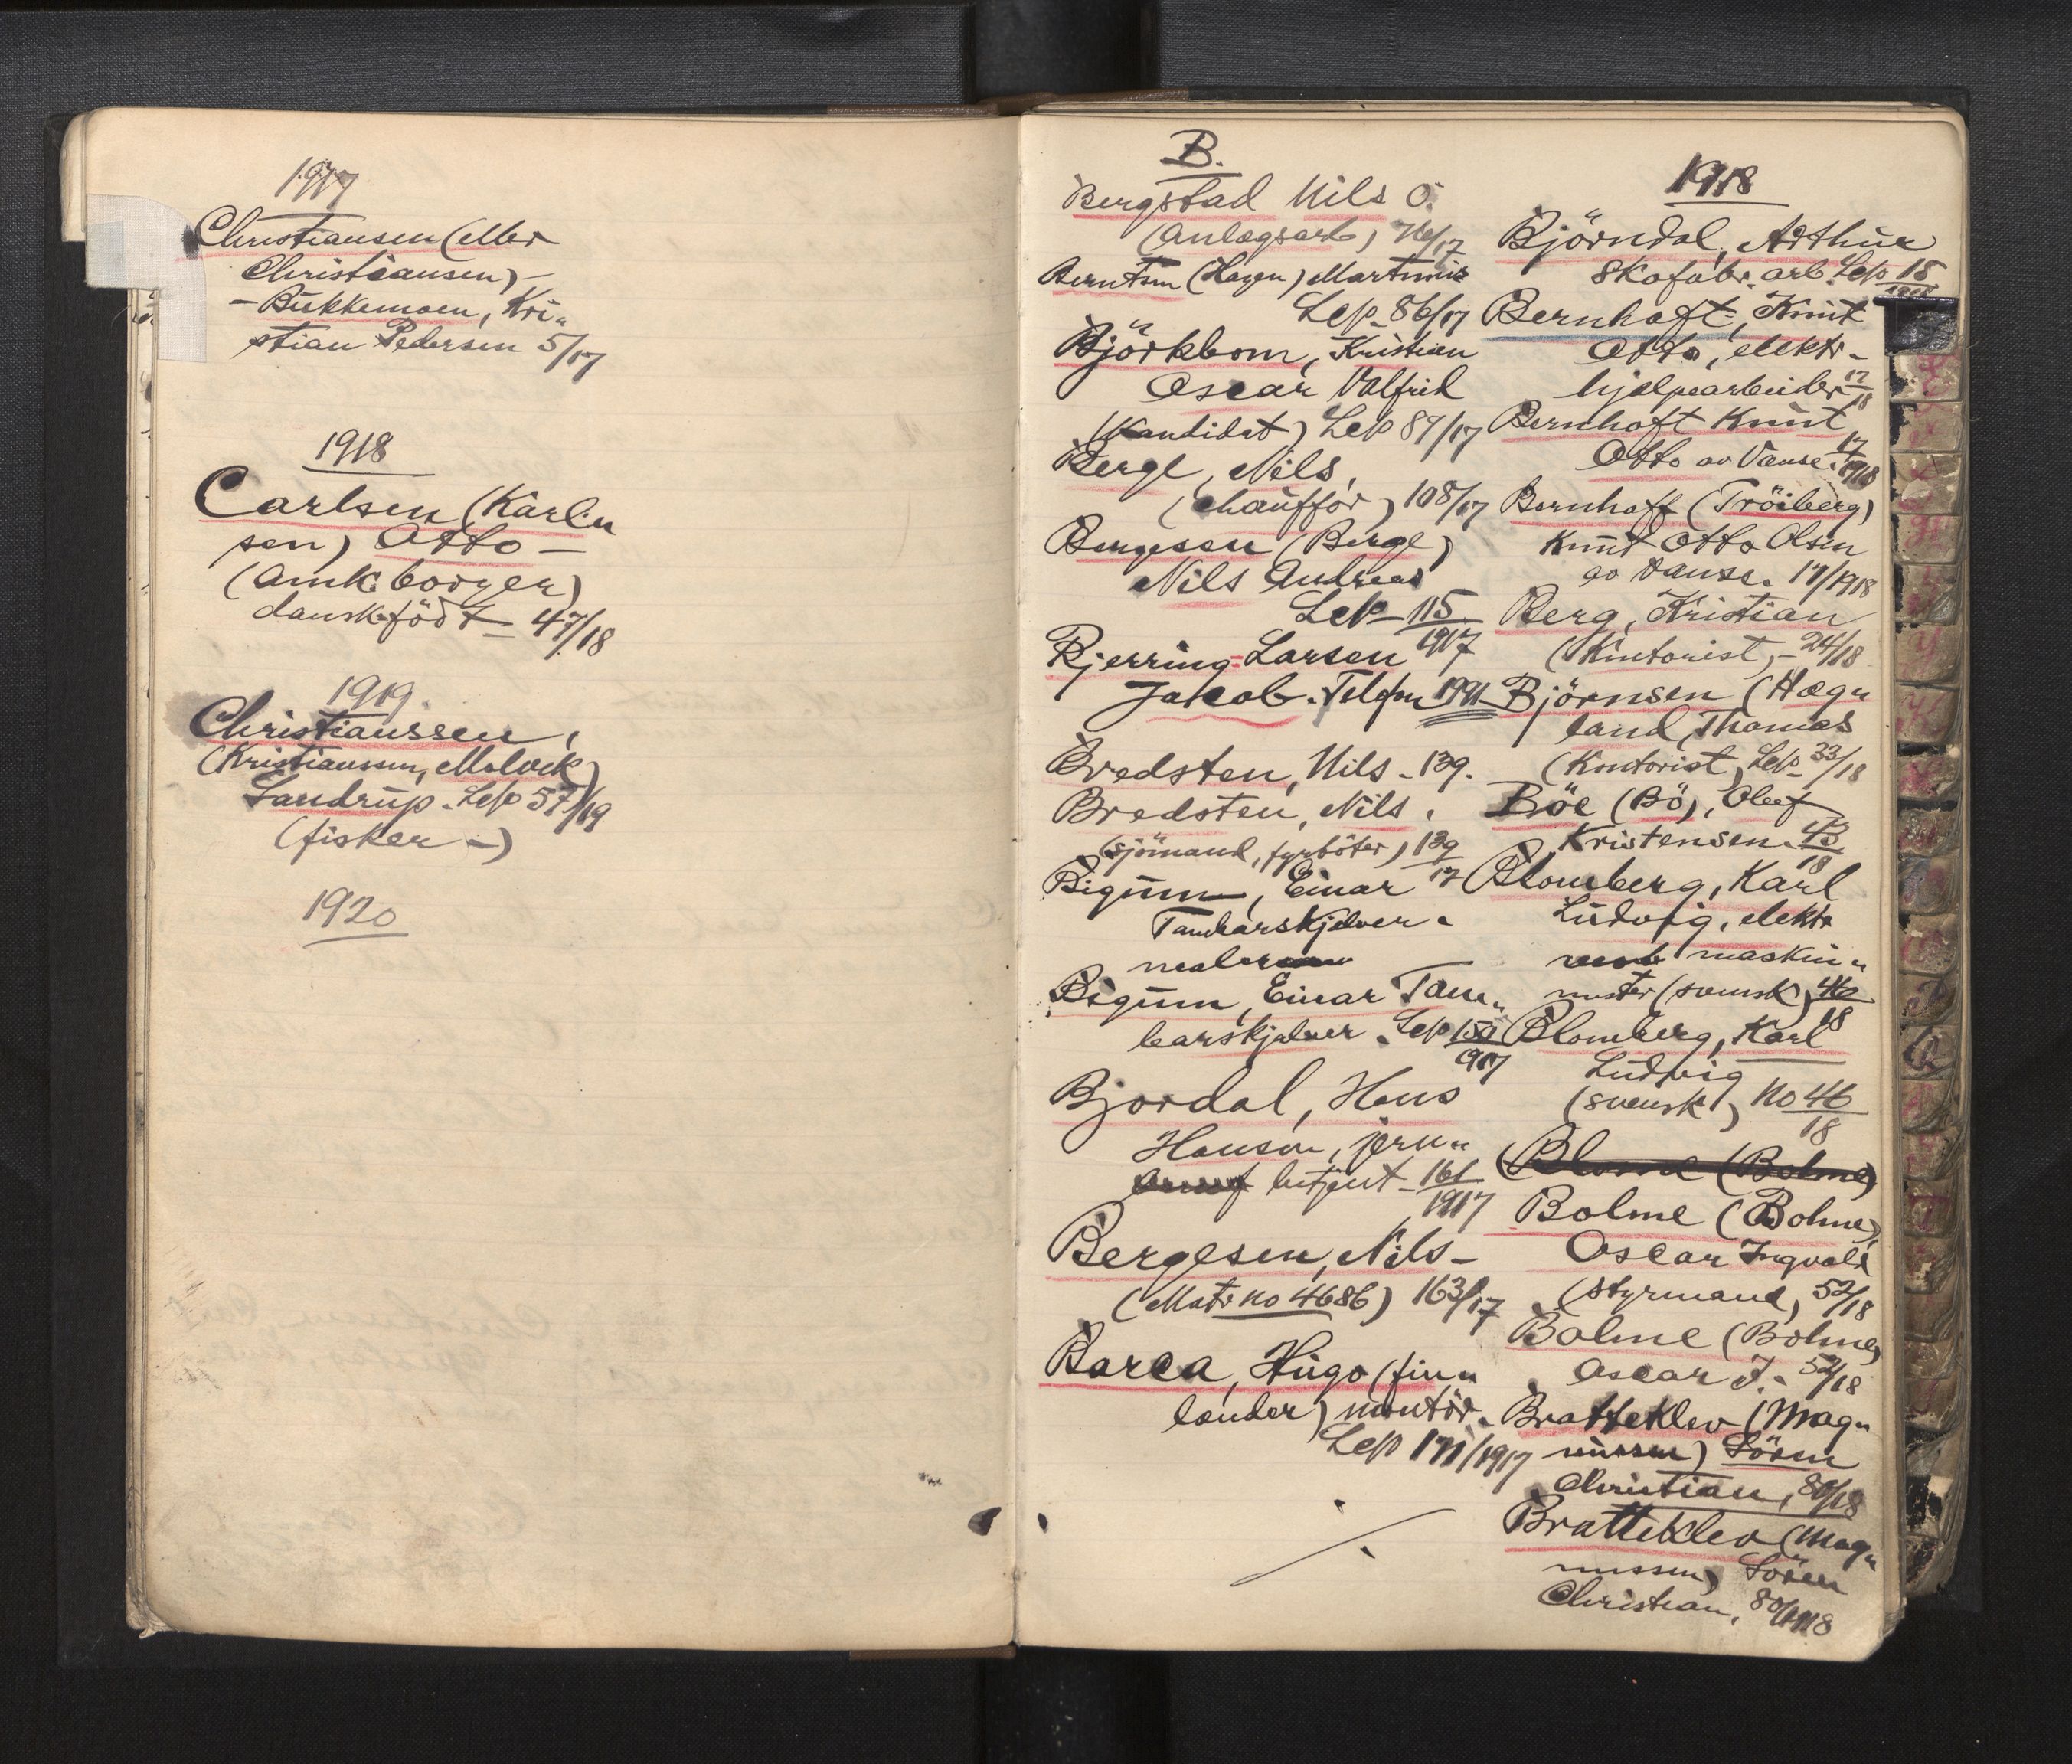 1917
Christiansen (eller
Christiansen) -
- Bukkemoen, Kri„
stian Pedersen 5/17
1918
Carlsen (Karl„
sen) Otto -
(amk. borger)
danskfödt - 47/18
1919.
Christianssen,
(Kristianssen, Malvik)
Sandrup. Lep 57/19
(fisker -)
1920
B.
Bergstad Nils O.
(anlægsarb)
Berntsen (Hagen) Martinius
Lep. 86/17
Björkbom, Kristian
Oscar Valfrid
(Kandidat) Lep 89/17
Berge, Nils,
(chaufför) 108/17
Bergesen (Berge)
Nils Andreas
Lep - 115
1917
Bjerring-Larsen
Jakob. Telefon 1991
Bredsten, Nils - 139.
Bredsten, Nils.
(sjömand, fyrböter) 139
17
Bigum, Einar
Tambarskjelver -
maler
Bigum, Einar Tam„
barskjelver. Lep 150
1917
Bjordal, Hans
Hansen, jern„
betjent - 161
1917
Bergesen, Nils -
(Matr no 4686) 163/17
Barca, Hugo (finn„
lender) montör.
Lep 171/1917
1918
Björndal, Arthur
Skofabr. arb. Lep 15
1918
Bernhoft, Knut
Otto, elektr -
hjelpearbeider 17
18
Bernhoft Knut
Otto av Vanse. 17
1918
Bernhoft (Tröiberg)
Knut Otto Olsen
av Vanse. 17/1918
Berg, Kristian
(Kontorist, - 24/18
Björnsen (Hæg„
land, Thomas
(Kontorist, Lep 33/18
Böe (Bö), Oluf
Kristensen. 43
18
Blomberg, Karl
Ludvig, elektr
maskin„
mster (svensk) 46
18
Blomberg, Karl
Ludvig
(svensk) no 46
18
Blome (Bolme)
Bolme (Bohme),
Oscar Ingvald
(styrmand, 52/18
Bolme (Bohme)
Oscar I. - 52/18
Bratteklev (Mag„
nussen) Sören
Christian, 80/18
Bratteklev (Mag„
nussen) Sören
Christian, 80/1918